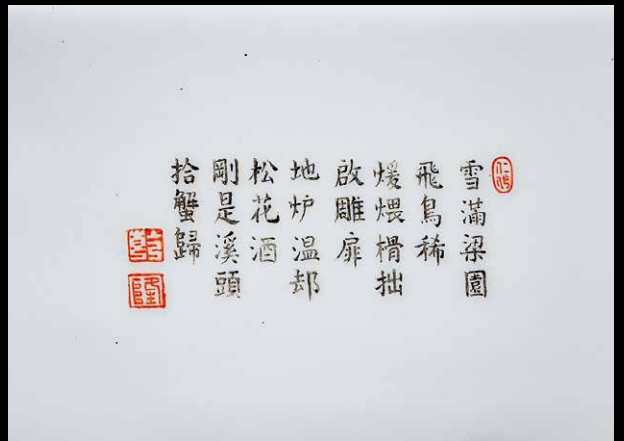 雪滿梁園
飛鳥稀
煖煨榾拙
啟雕扉
地炉温却
松花酒
剛是溪頭
拾蟹歸
乾
隆